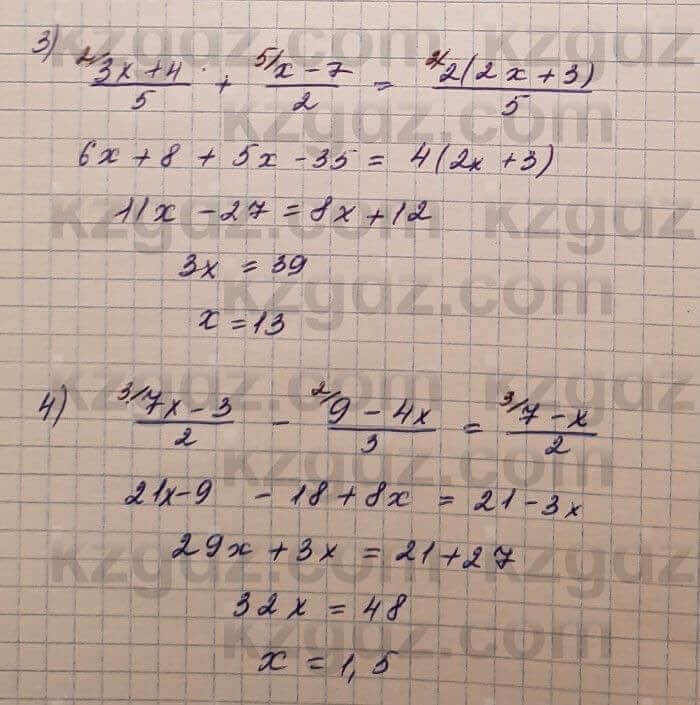 3) 2/ (3x + 4)/5 + 5/ (x - 7)/2 = 2/ 2(2x + 3)/5
6x + 8 + 5x - 35 = 4(2x + 3)
11x - 27 = 8x + 12
3x = 39
x = 13
4) 3/ (7x - 3)/2 - 2/ (9 - 4x)/3 = 3/ (7 - x)/2
21x - 9 - 18 + 8x = 21 - 3x
29x + 3x = 21 + 27
32x = 48
x = 1,5
kzgdz.com